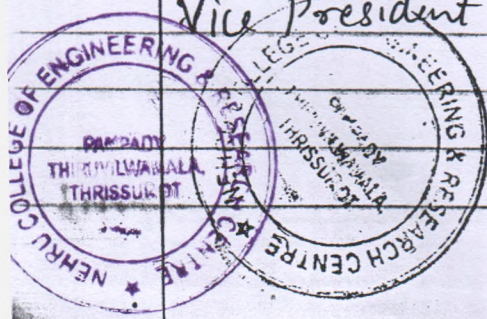 Vice President
NEHRU COLLEGE OF ENGINEERING & RESEARCH CENTRE
PAMPADY
THIRUVILWAMALA,
THRISSUR DT
COLLEGE OF ENGINEERING & RESEARCH CENTRE
PAMPADY
THIRUVILWAMALA,
THRISSUR DT